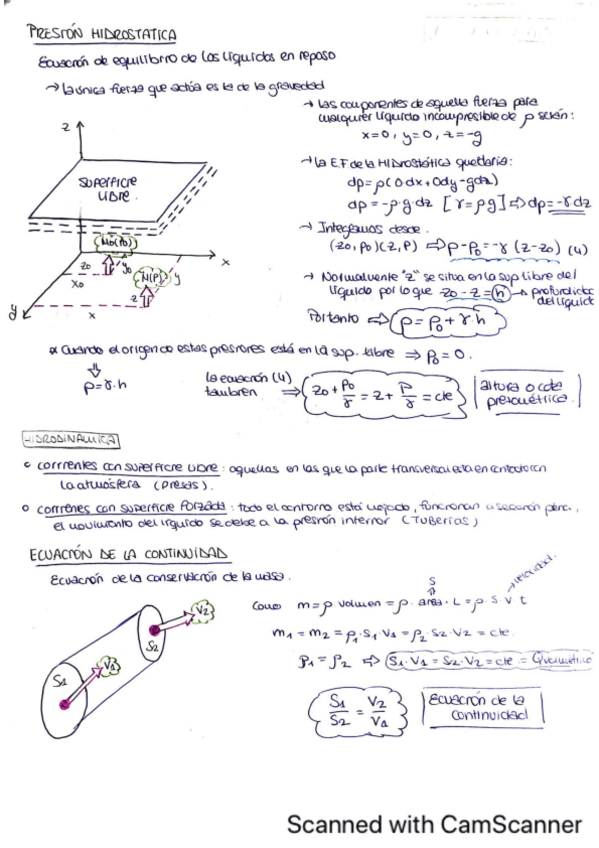 PRESIÓN HIDROSTATICA
Ecuación de equilibrio de los líquidos en reposo
→ la única fuerza que actúa es la de la gravedad
→ las componentes de aquella fuerza para
cualquier líquido incompresible de ρ serían:
x=0, y=0, z=-g
→ la E.F. de la Hidrostática quedaría:
dp=ρ(0dx+0dy-gdz)
dp=-ρ·g·dz [γ=ρg] ⇒ dp=-γdz
→ Integramos desde
(z0,p0)(z,p) ⇒ p-p0=-γ(z-z0) (4)
→ Normalmente "z" se situa en la sup libre del
líquido por lo que z0-z=h → profundidad
del líquido
Por tanto ⇒ p=p0+γ·h
z
SUPERFICIE
LIBRE
M0(P0)
z0
y0
x0
N(P)
y
x
z
x
y
* Cuando el origen de estas presiones está en la sup. libre ⇒ p0=0.
⇓
p=γ·h
la ecuación (4)
tambien ⇒ z0+p0/γ=z+p/γ=cte
altura o cota
piezométrica.
HIDRODINAMICA
○ corrientes con superficie libre: aquellas en las que la parte transversal esta en contacto con
la atmósfera (presas).
○ corrienes con superficie forzada: todo el contorno está mojado, funcionan a sección plena,
el movimiento del líquido se debe a la presión interior (TUBERIAS)
ECUACIÓN DE LA CONTINUIDAD
Ecuación de la conservación de la masa.
S
velocidad.
Como m=ρ·volumen=ρ·area·L=ρ·S·v·t
m1=m2=ρ1·S1·V1=ρ2·S2·V2=cte.
ρ1=ρ2 ⇒ S1·V1=S2·V2=cte=
S1/S2=V2/V1
Ecuación de la
continuidad
V2
S2
V1
S1
Scanned with CamScanner